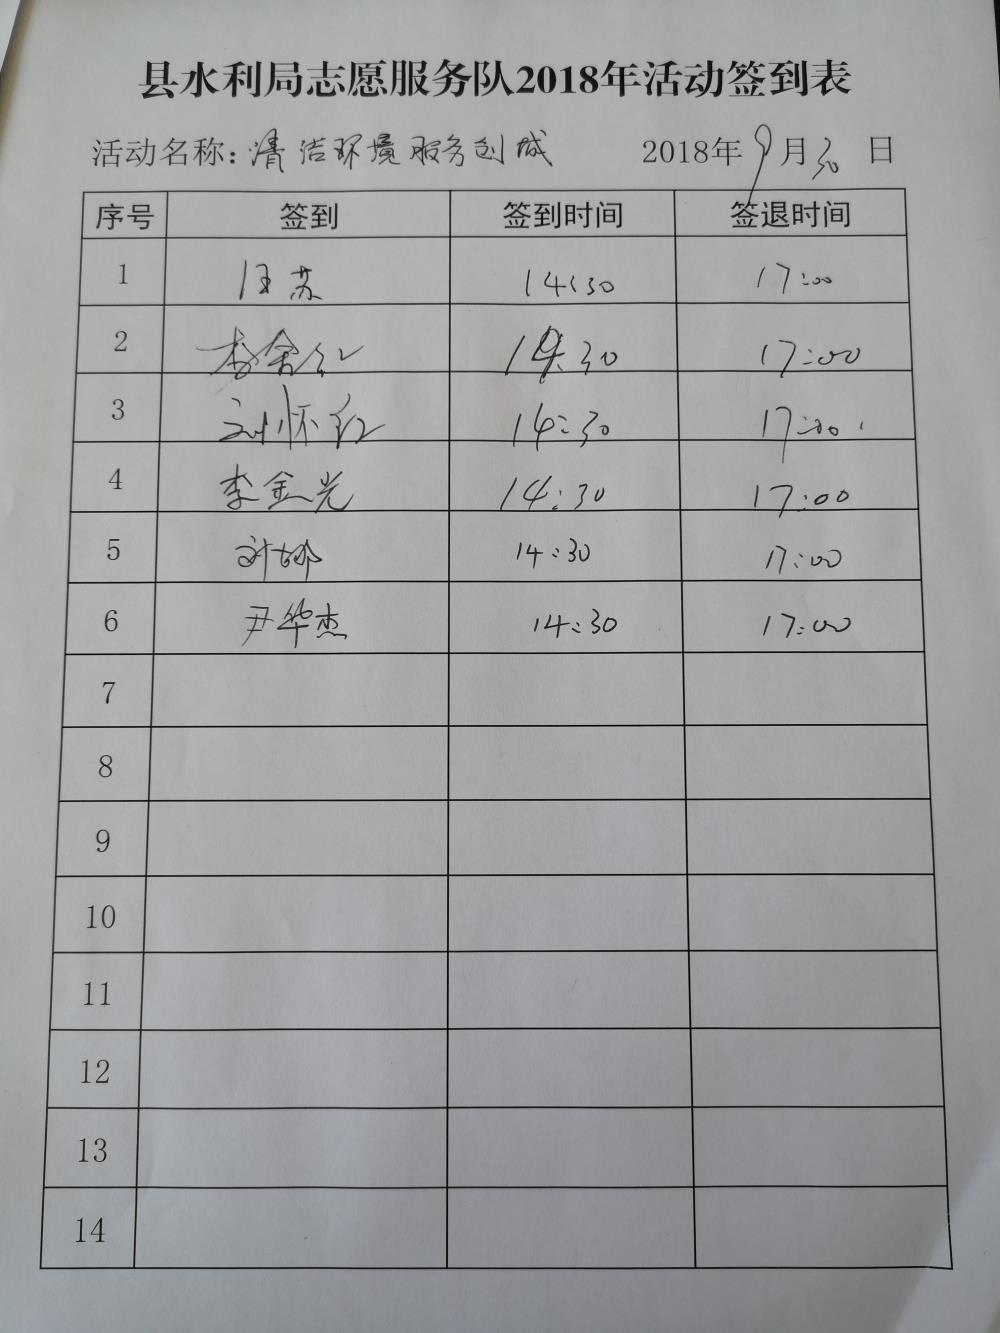 县水利局志愿服务队2018年活动签到表
活动名称：清洁环境服务创城 2018年9月30日
序号 签到 签到时间 签退时间
1 汪苏 14:30 17:00
2 李金红 14:30 17:00
3 刘怀红 14:30 17:00
4 李金光 14:30 17:00
5 刘娜 14:30 17:00
6 尹华杰 14:30 17:00
7
8
9
10
11
12
13
14